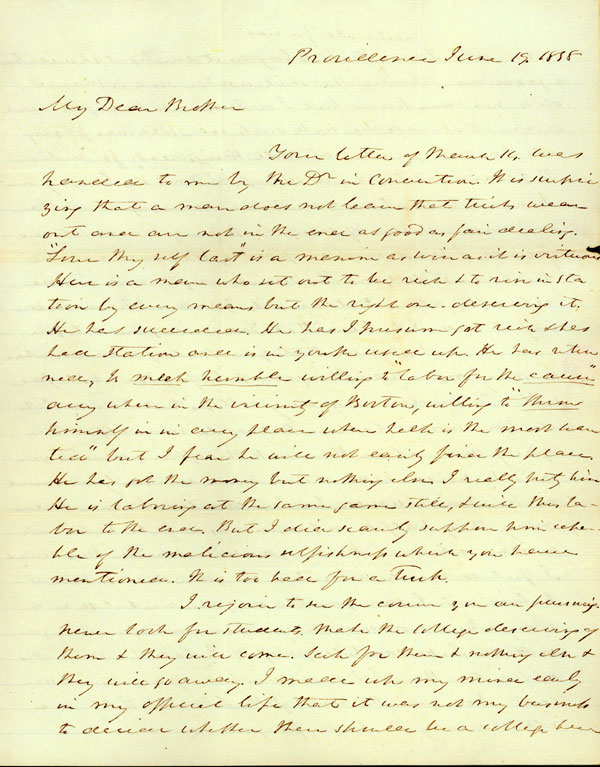 Providence June 19, 1838
My Dear Brother
Your letter of March 14 was
handed to me by the Dr in Convention. It is surpri
zing that a man does not learn that tricks wear
out and are not in the end as good as fair dealing.
"Love thy self last" is a maxim as wise as it is virtuous
Here is a man who set out to be rich & to rise in sta
tion by every means but the right one - deserving it.
He has succeeded. He has I presume got rich & has
had station and is in youth used up. He has retur
ned, Is meek humble willing to "labor for the cause"
any where in the vicinity of Boston, willing to "throw
himself in in any place where help is the most wan
ted" but I fear he will not easily find the place.
He has got the money but nothing else. I really pity him
He is laboring at the same game still, & will thus la-
bor to the end. But I did scarcely suppose him capa-
ble of the malicious selfishness which you have
mentioned. It is too bad for a Turk.
I rejoice to see the course you are pursuing.
Never look for students. Make the college deserving of
them & they will come. Seek for them & nothing else &
they will go away. I made up my mind early
in my official life that it was not my business
to decide whether there should be a college here